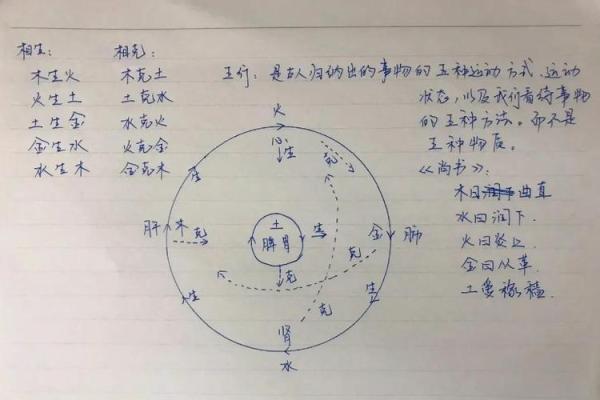 相生:
木生火
火生土
土生金
金生水
水生木
相克:
木克土
土克水
水克火
火克金
金克木
五行: 是古人归纳出的事物的五种运动方式、运动
状态,以及我们看待事物
的五种方法。而不是
五种物质。
《尚书》:
木曰曲直
水曰润下.
火曰炎上
金曰从革.
土爰稼穑.
火
心
生
克
生
肝
木
克
土
脾胃
生
金
肺
克
克
生
生
克
肾
水